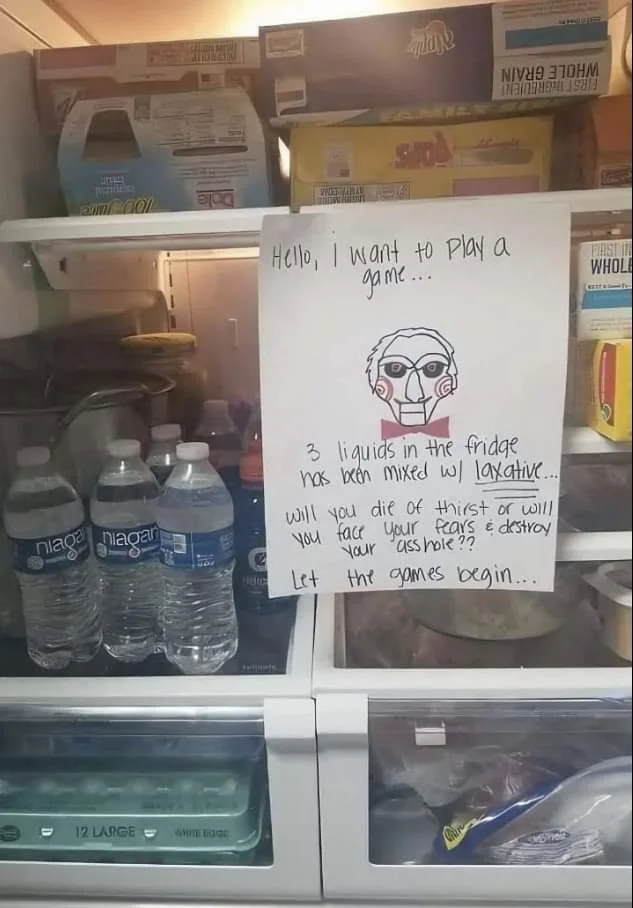 WHOLE GRAIN
FIRST INGREDIENT
Dole
FIRST IN
WHOLE
Hello, i want to play a
game...
3 liquids in the fridge
has been mixed w/ laxative...
will you die of thirst or will
you face your fears & destroy
your asshole??
Let the games begin...
niaga
niagar
12 LARGE